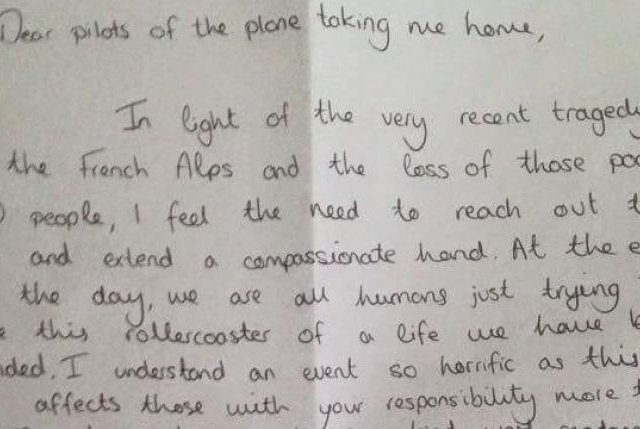 Dear pilots of the plane taking me home,
In light of the very recent
the French Alps and the loss of those
people, I feel the need to reach out
and extend a compassionate hand. At the
the day, we are all humans just trying
this rollercoaster of a life we have
I understand an event so horrific as this
affects those with your responsibility more